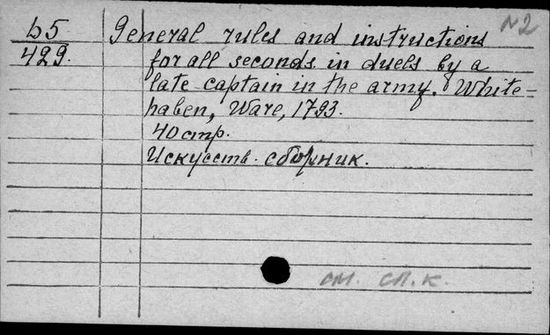 b5
429.
N2
General rules and instructions
for all seconds in duels by a
late captain in the army. White-
haben, Ware, 1793.
40 стр.
Искусств. сборник.
см. сп. к.